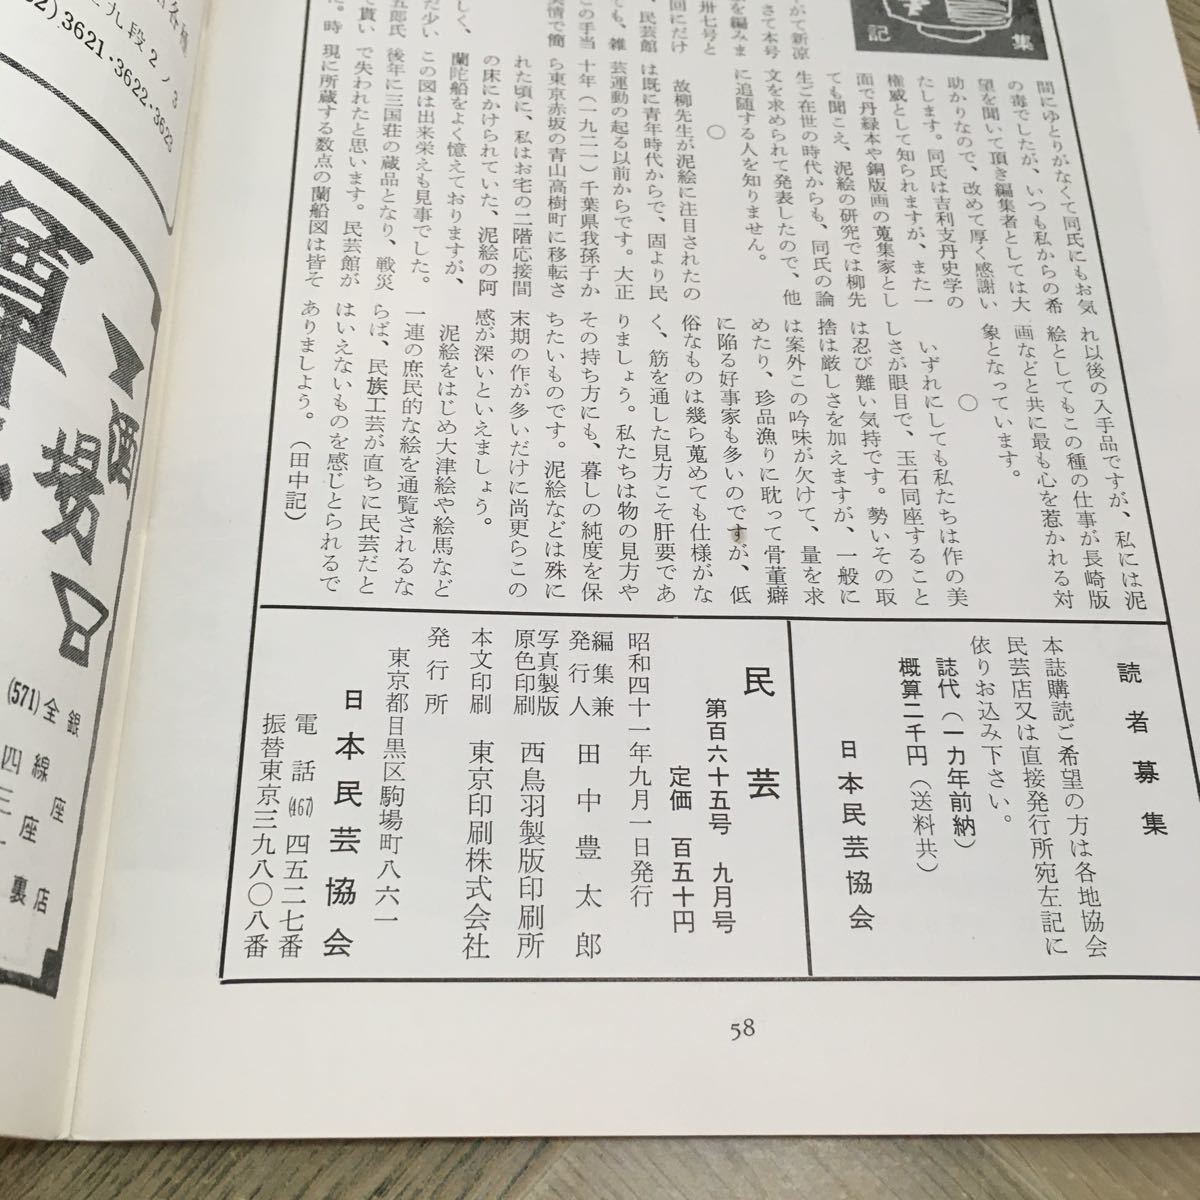 集
記
間にゆとりがなくて同氏にもお気
の毒でしたが、いつも私からの希
望を聞いて頂き編集者としては大
助かりなので、改めて厚く感謝い
たします。同氏は吉利支丹史学の
権威として知られますが、また一
面で丹緑本や銅版画の蒐集家とし
ても聞こえ、泥絵の研究では柳先
生ご在世の時代からも、同氏の論
文を求められて発表したので、他
に追随する人を知りません。
○
故柳先生が泥絵に注目されたの
は既に青年時代からで、固より民
芸運動の起る以前からです。大正
十年(一九二一)千葉県我孫子か
ら東京赤坂の青山高樹町に移転さ
れた頃に、私はお宅の二階応接間
の床にかけられていた、泥絵の阿
蘭陀船をよく憶えておりますが、
この図は出来栄えも見事でした。
後年に三国荘の蔵品となり、戦災
で失われたと思います。民芸館が
現に所蔵する数点の蘭船図は皆そ
れ以後の入手品ですが、私には泥
絵としてもこの種の仕事が長崎版
画などと共に最も心を惹かれる対
象となっています。
○
いずれにしても私たちは作の美
しさが眼目で、玉石同座すること
は忍び難い気持です。勢いその取
捨は厳しさを加えますが、一般に
は案外この吟味が欠けて、量を求
めたり、珍品漁りに耽って骨董癖
に陥る好事家も多いのですが、低
俗なものは幾ら蒐めても仕様がな
く、筋を通した見方こそ肝要であ
りましょう。私たちは物の見方や
その持ち方にも、暮しの純度を保
ちたいものです。泥絵などは殊に
末期の作が多いだけに尚更らこの
感が深いといえましょう。
泥絵をはじめ大津絵や絵馬など
一連の庶民的な絵を通覧されるな
らば、民族工芸が直ちに民芸だと
はいえないものを感じとられるで
ありましよう。(田中記)
読者募集
本誌購読ご希望の方は各地協会
民芸店又は直接発行所宛左記に
依りお込み下さい。
誌代(一カ年前納)
概算二千円(送料共)
日本民芸協会
民芸
第百六十五号 九月号
定価 百五十円
昭和四十一年九月一日発行
編集兼
発行人 田中豊太郎
写真製版
原色印刷 西鳥羽製版印刷所
本文印刷 東京印刷株式会社
発行所
東京都目黒区駒場町八六一
日本民芸協会
電話(467)四五二七番
振替東京三九八〇八番
58
3621・3622・3623
九段2ノ3
酒場
(571)